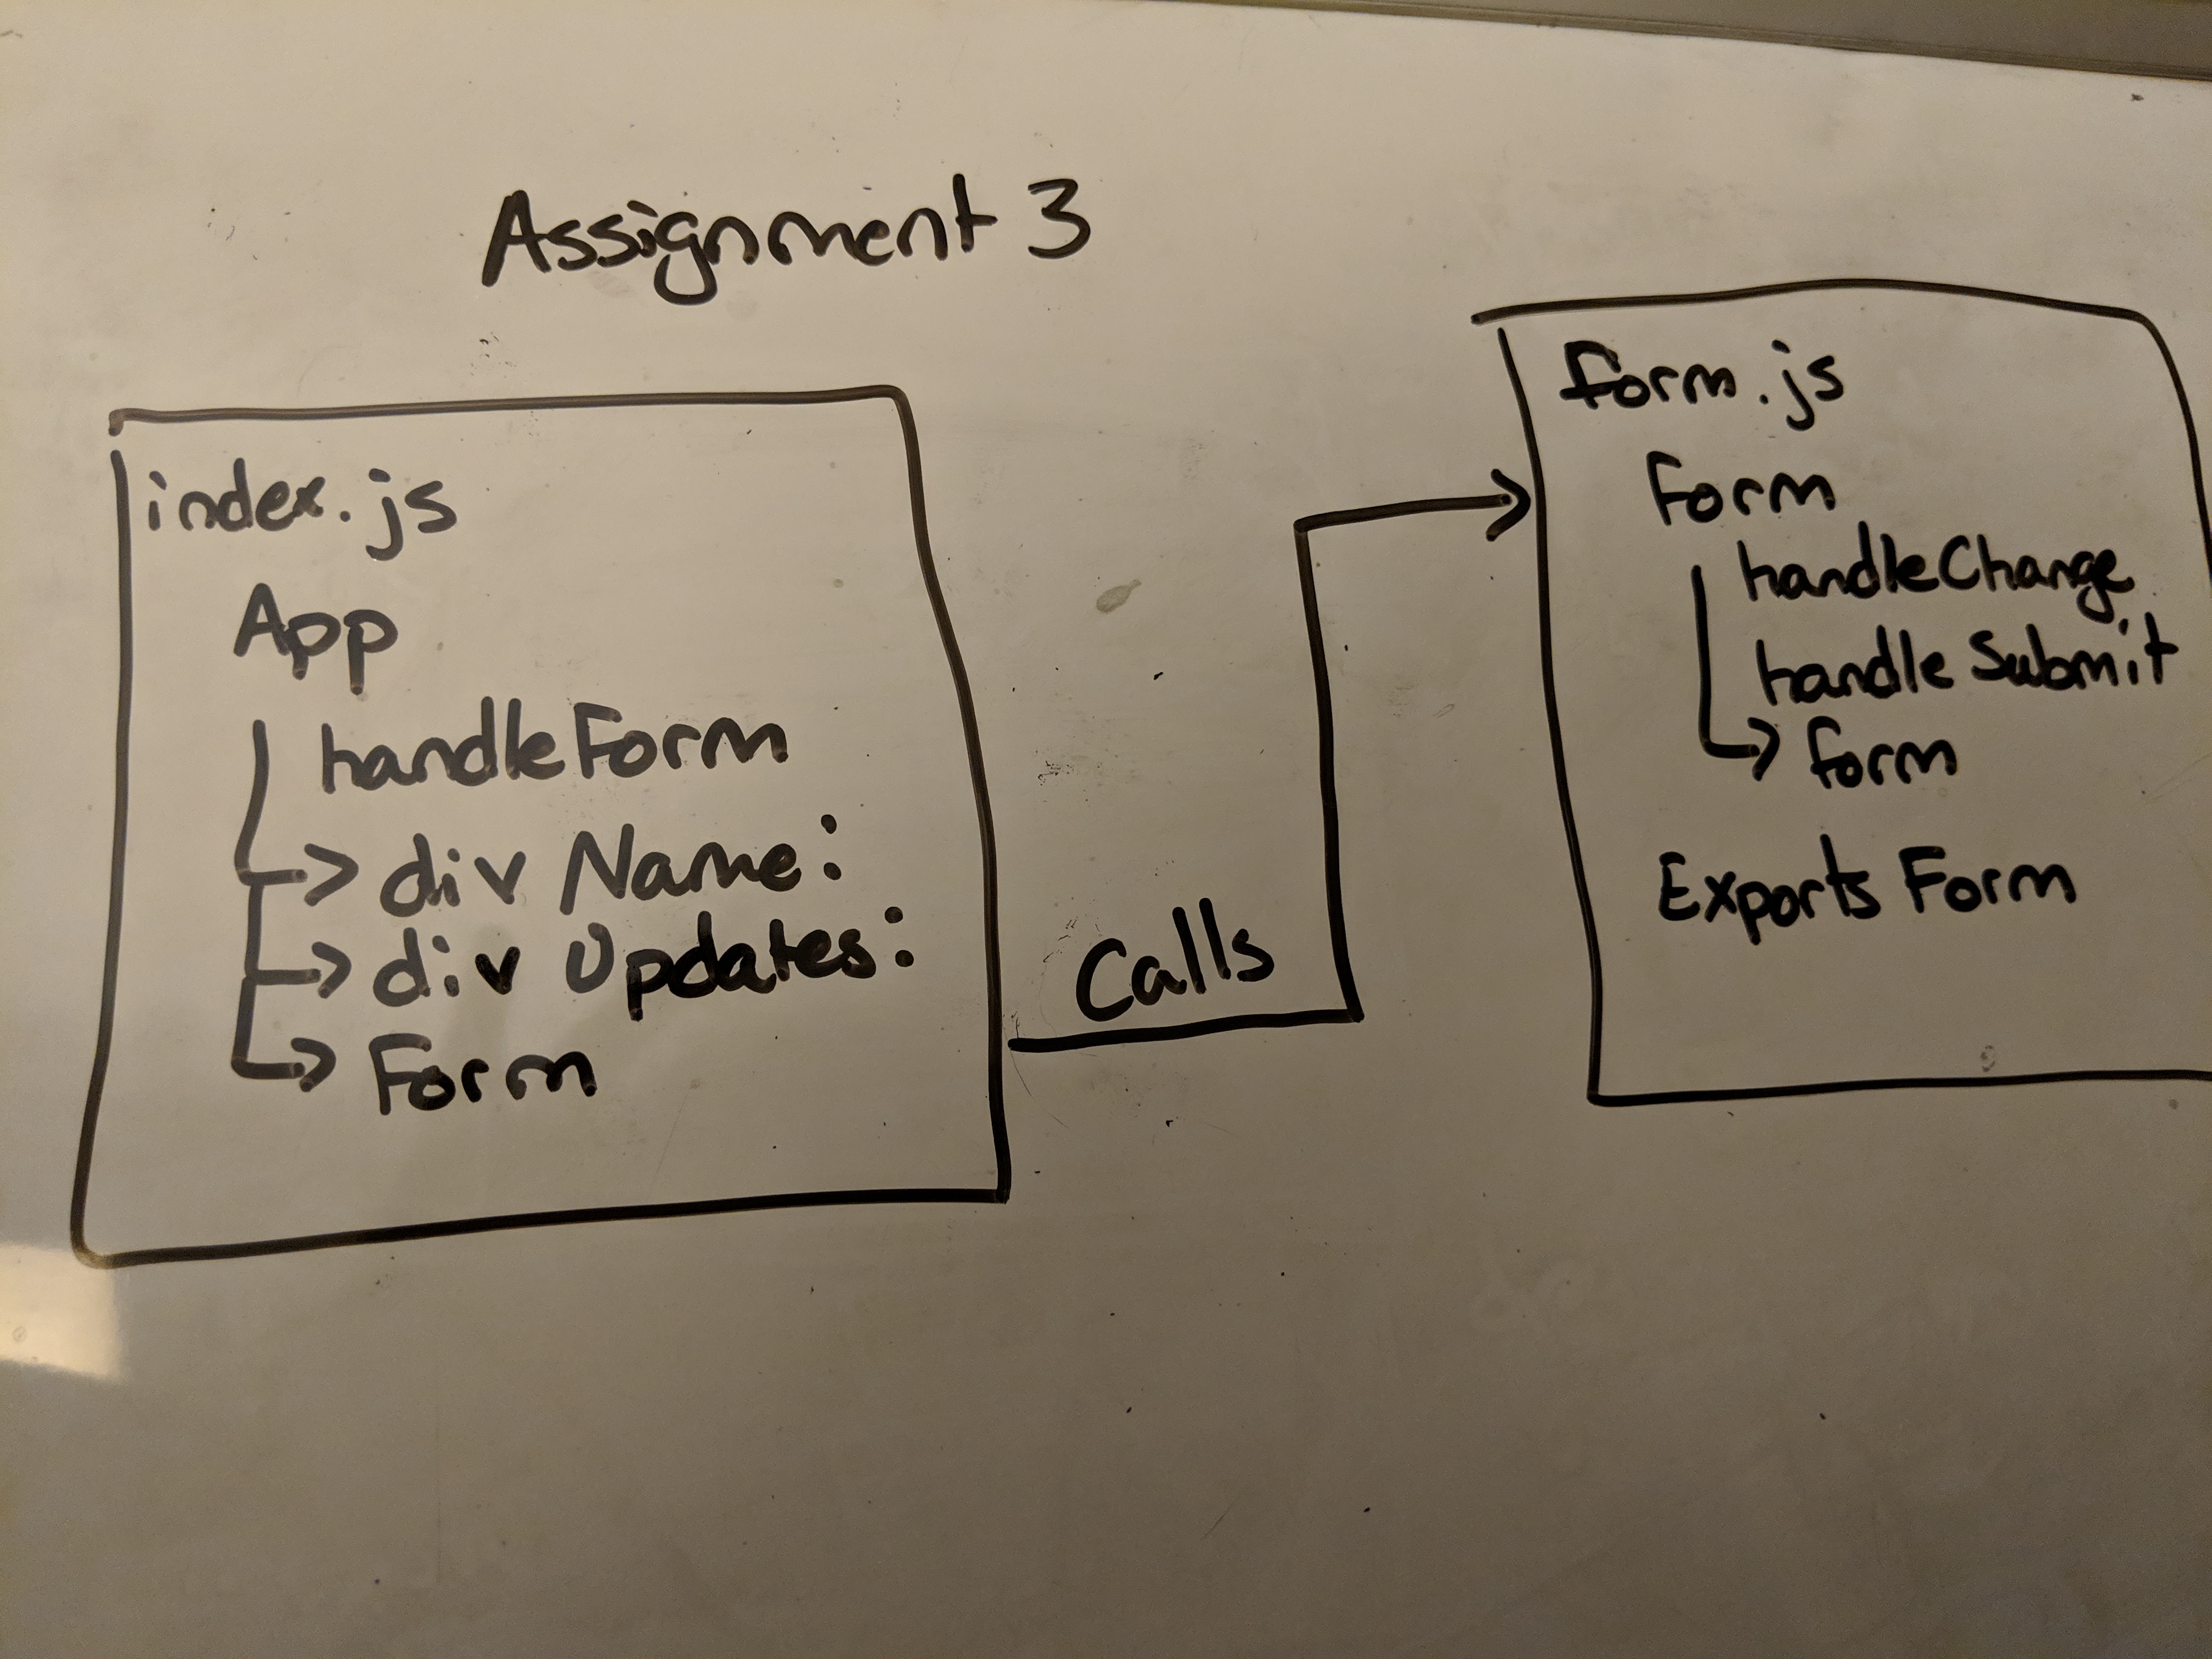 Assignment 3
index.js
App
handleForm
div Name:
div Updates:
Form
Calls
form.js
Form
handleChange
handleSubmit
form
Exports Form